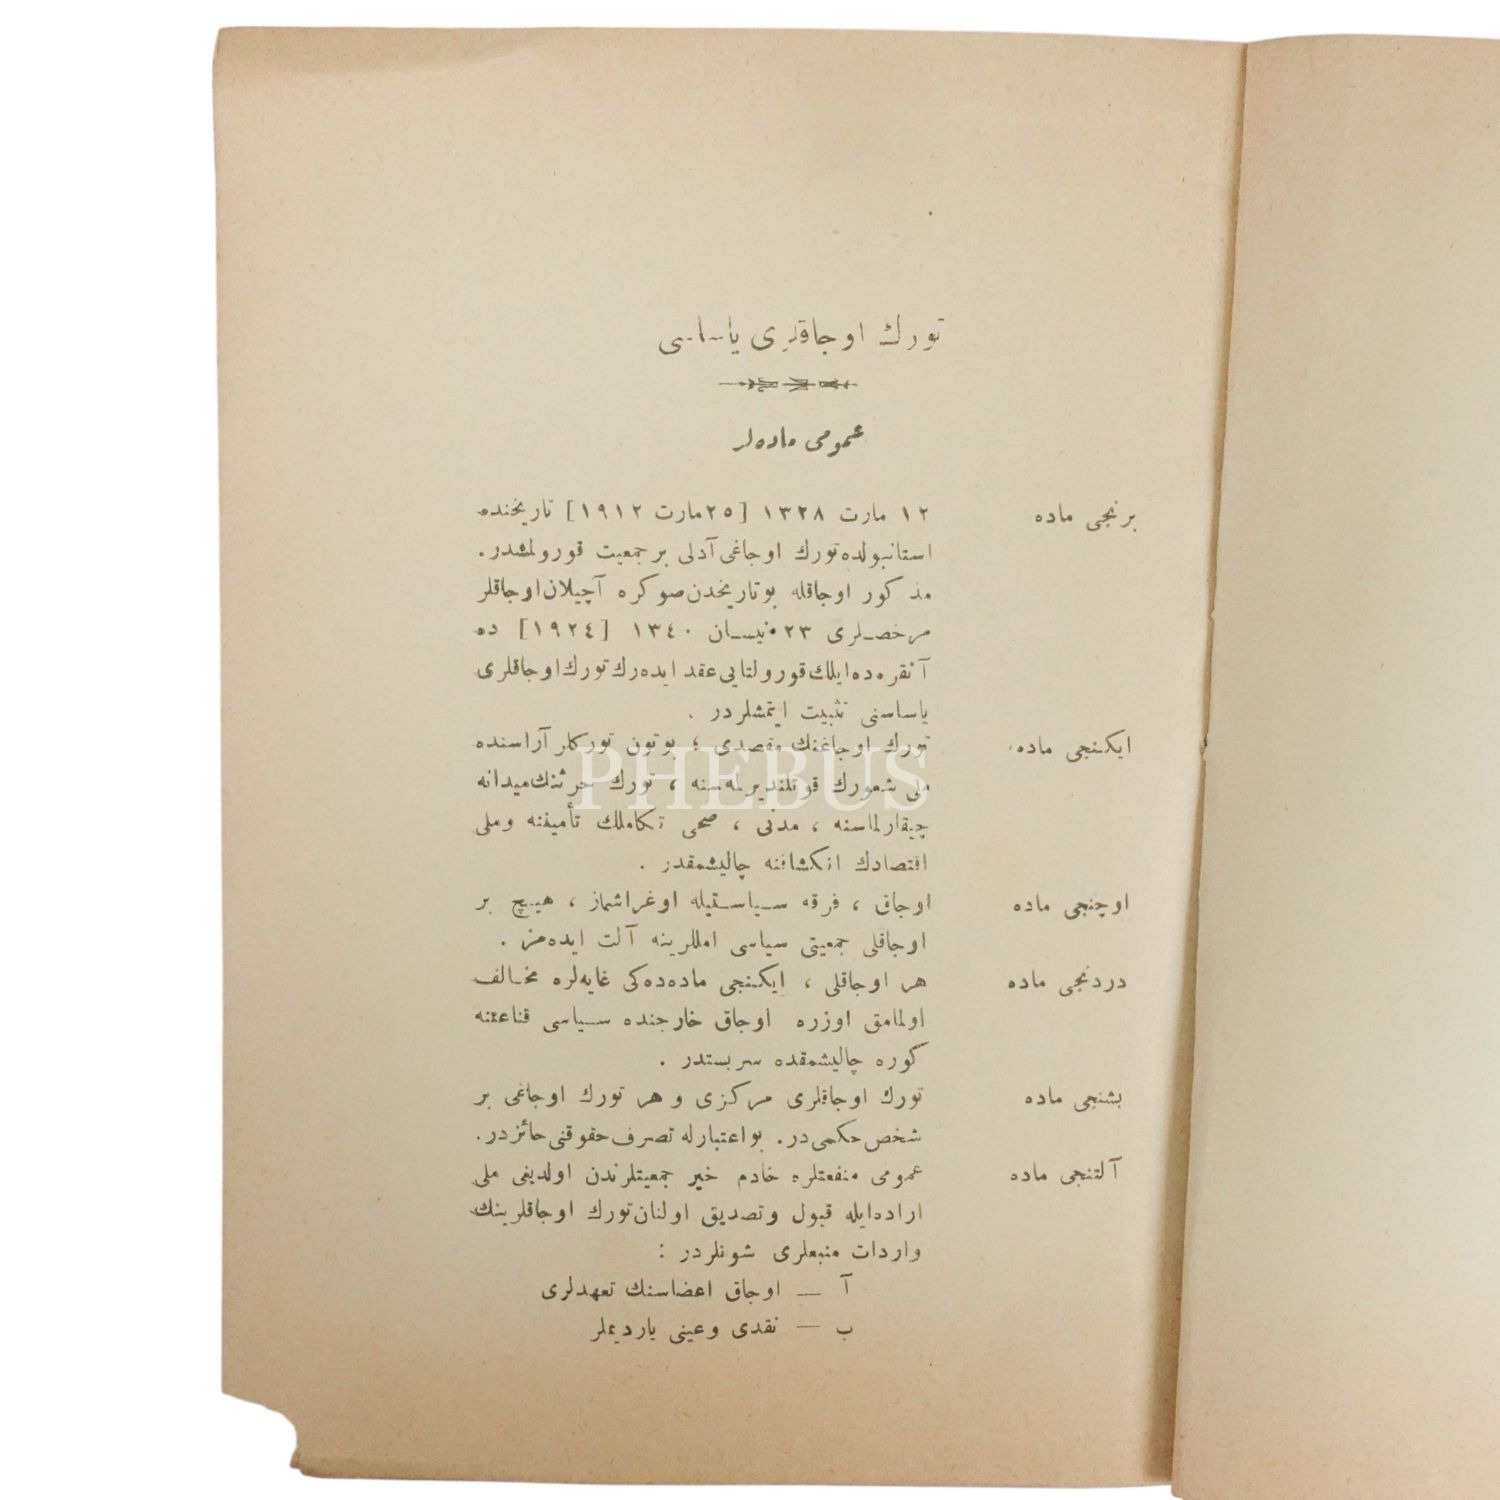 تورك اوجاقلری یاساسی
عمومی ماده‌لر
برنجی ماده ١٢ مارت ١٣٢٨ [٢٥مارت ١٩١٢] تاریخنده
استانبولده تورك اوجاغی آدلی بر جمعیت قورولمشدر.
مذكور اوجاقله بوتاریخدن صوكره آچیلان اوجاقلر
مرخصلری ٢٣ نیسان ١٣٤٠ [١٩٢٤] ده
آنقره‌ده ایلك قورولتایی عقد ایده‌رك تورك اوجاقلری
یاساسنی تثبیت ایتمشلردر .
ایكنجی ماده تورك اوجاغنك مقصدی ؛ بوتون توركلر آراسنده
ملی شعورك قوتلندیرلمه‌سنه ، تورك حرثنك میدانه
چیقارلماسنه ، مدنی ، صحی تكاملك تأمیننه وملی
اقتصادك انكشافنه چالیشمقدر .
اوچنجی ماده اوجاق ، فرقه سیاستیله اوغراشماز ، هیچ بر
اوجاقلی جمعیتی سیاسی امللرینه آلت ایده‌مز .
دردنجی ماده هر اوجاقلی ، ایكنجی ماده‌ده‌كی غایه‌لره مخالف
اولمامق اوزره اوجاق خارجنده سیاسی قناعتنه
كوره چالیشمقده سربستدر .
بشنجی ماده تورك اوجاقلری مركزی و هر تورك اوجاغی بر
شخص حكمی‌در. بواعتبارله تصرف حقوقنی حائزدر.
آلتنجی ماده عمومی منفعتلره خادم خیر جمعیتلرندن اولدیغی ملی
اراده‌ایله قبول وتصدیق اولنان تورك اوجاقلرینك
واردات منبعلری شونلردر :
آ — اوجاق اعضاسنك تعهدلری
ب — نقدی وعینی یاردیملر
PHEBUS